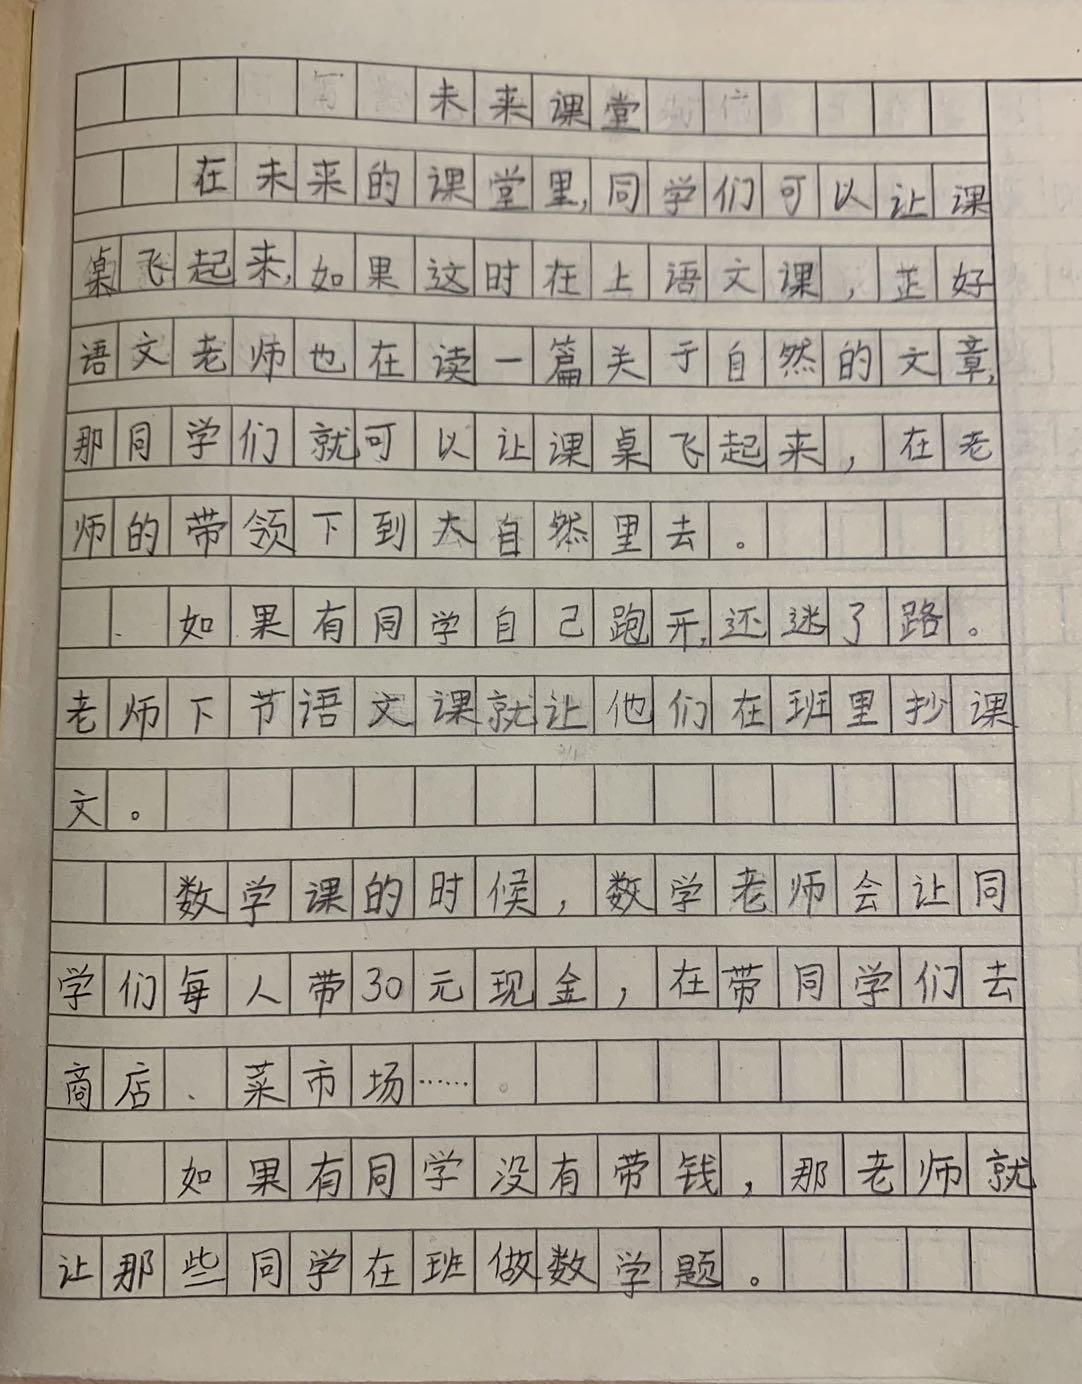 未来课堂
在未来的课堂里,同学们可以让课
桌飞起来,如果这时在上语文课，芷好
语文老师也在读一篇关于自然的文章,
那同学们就可以让课桌飞起来，在老
师的带领下到大自然里去。
如果有同学自己跑开,还迷了路。
老师下节语文课就让他们在班里抄课
文。
数学课的时候，数学老师会让同
学们每人带30元现金，在带同学们去
商店、菜市场……。
如果有同学没有带钱，那老师就
让那些同学在班做数学题。